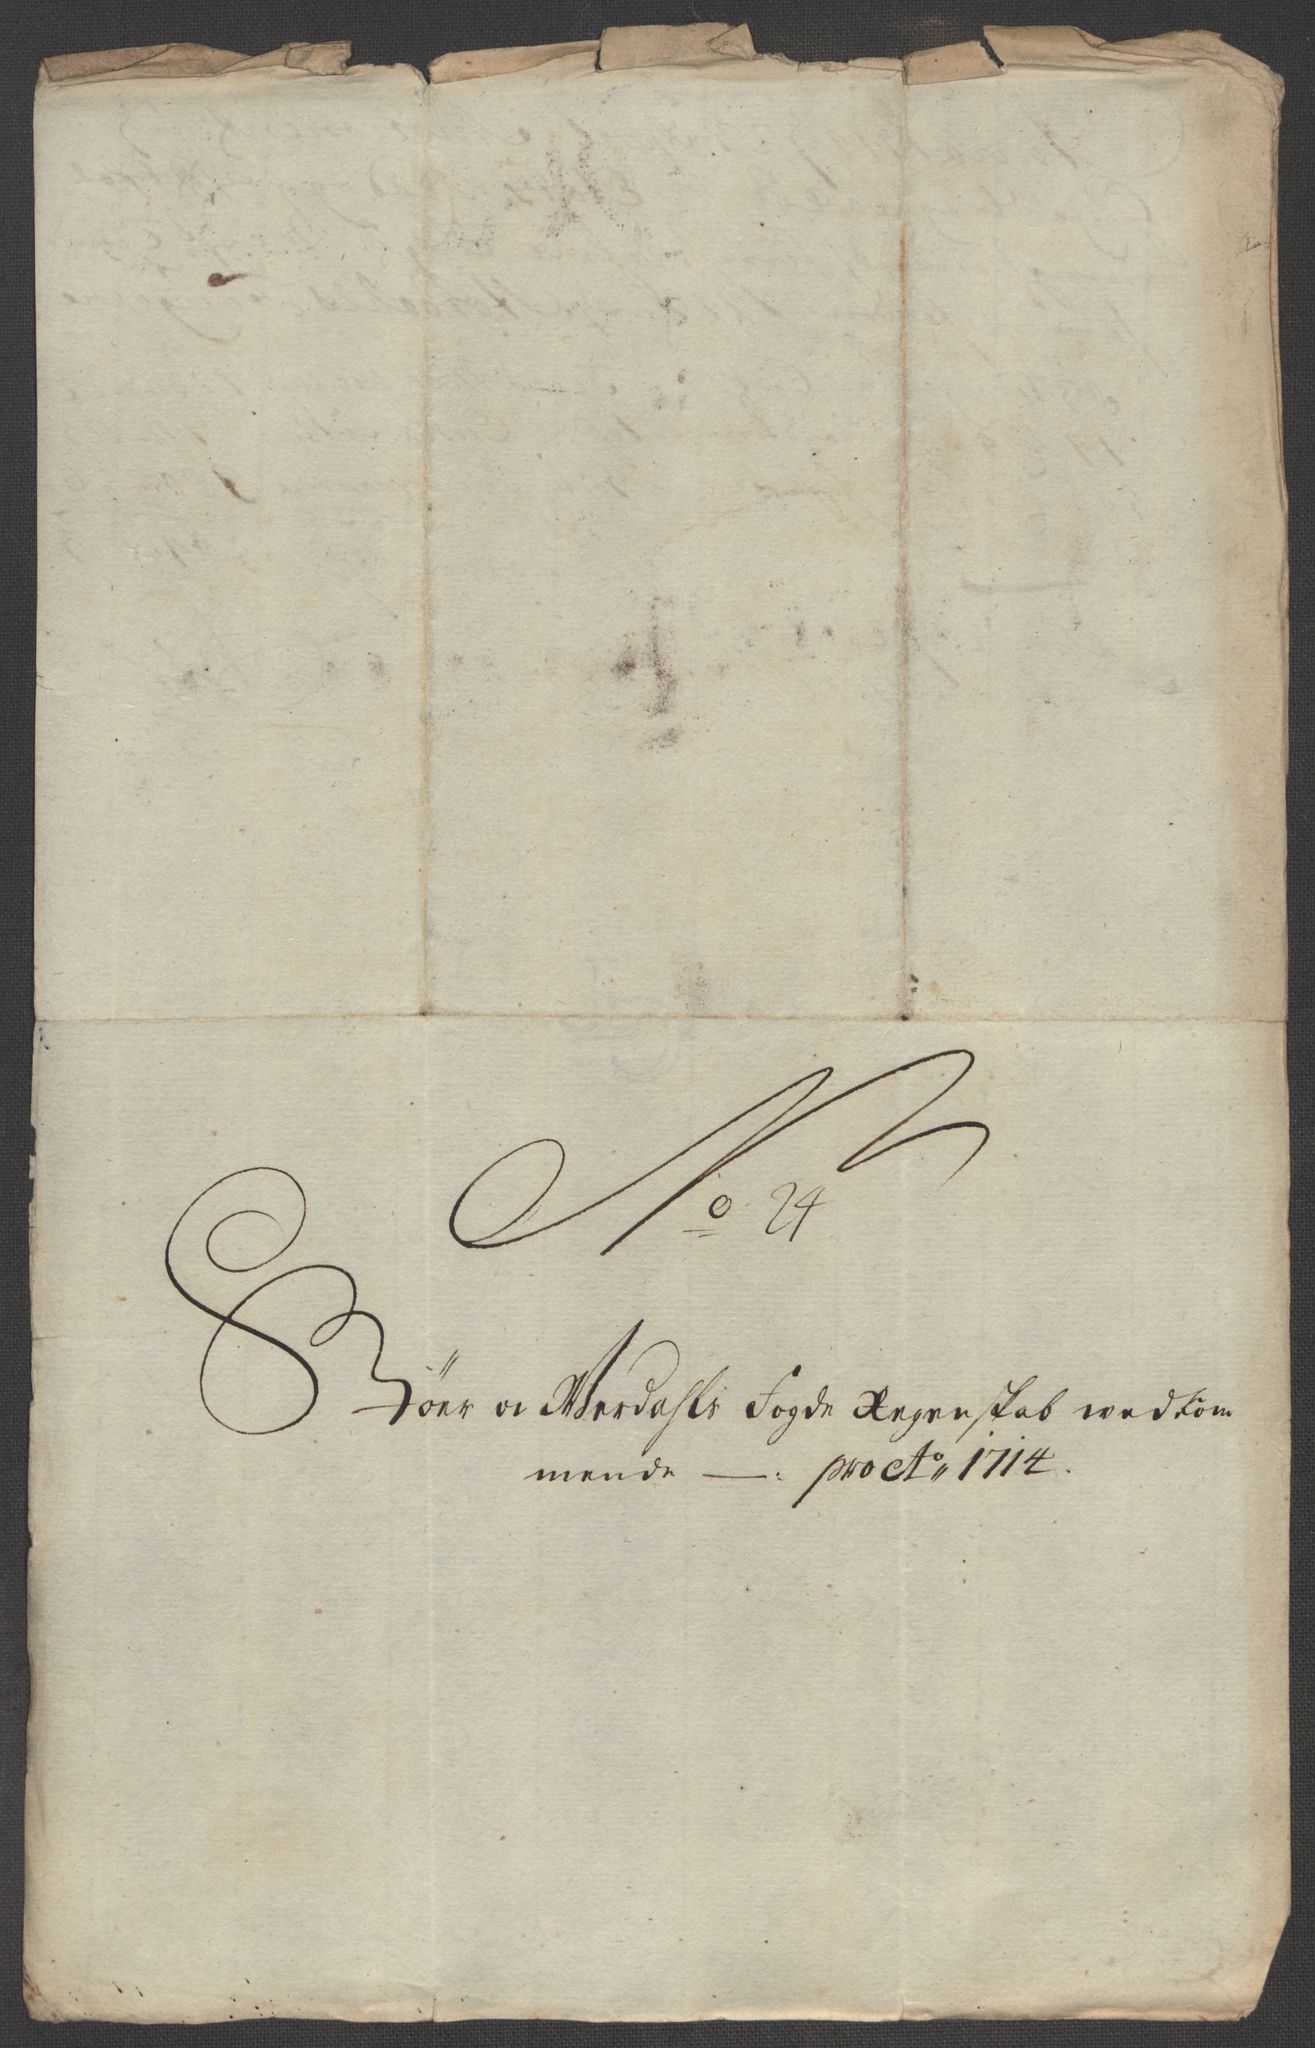 No 24
Stöer og Werdahls Fogde Regenskab wedkom
mende —: pro Ao 1714.